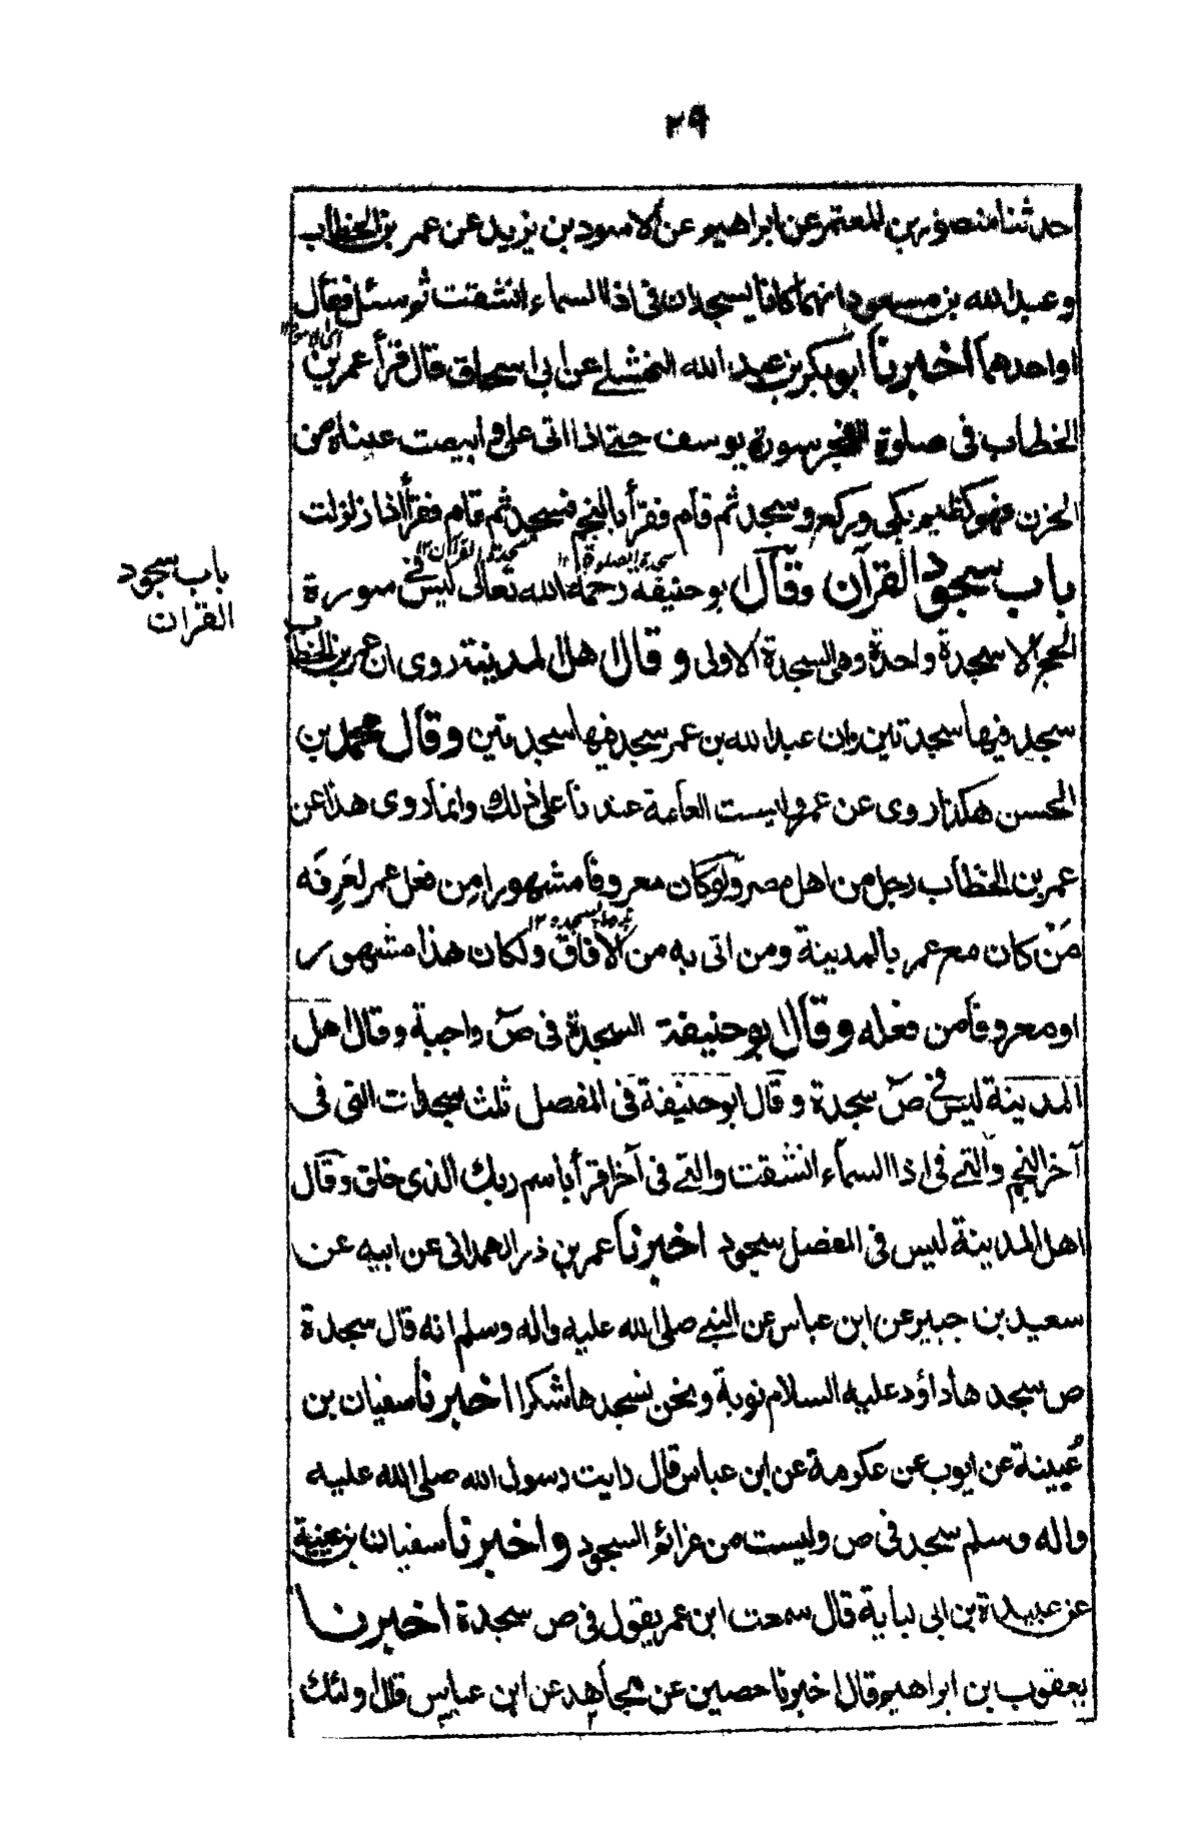 ٢٩
حدثنا منصور بن المعتمر عن ابراهيم عن الاسود بن يزيد عن عمر بن الخطاب
وعبد الله بن مسعود انهما كانا يسجدان فى اذا السماء انشقت ثم سئل فقال
او احدهما اخبرنا ابو بكر بن عبد الله النهشلے عن ابى اسحاق قال قرأ عمر بن
الخطاب فى صلوة الفجر سورة يوسف حتے اذا اتى على وابيضت عيناه من
الحزن فهو كظيم بكى وركع وسجد ثم قام فقرأ بالنجم فسجد ثم قام فقرأ اذا زلزلت
باب سجود القرآن وقال ابو حنيفه رحمة الله تعالى ليس فى سورة
باب سجود
القران
الحج الا سجدة واحدة وهى السجدة الاولى وقال اهل المدينة روى ان عمر بن الخطاب
سجد فيها سجدتين وان عبد الله بن عمر سجد فيها سجدتين وقال محمد بن
الحسن هكذا روى عن عمر وليست العامة عندنا على ذلك وانما روى هذا عن
عمر بن الخطاب رجل من اهل مصر ولو كان معروفا مشهورا مِن فعل عمر لعَرِفَه
مَنْ كان مع عمر بالمدينة ومن اتى به من الافاق ولكان هذا مشهور
او معروفا من فعله وقال ابو حنيفة السجدة فى صٓ واجبة وقال اهل
المدينة ليس فى صٓ سجدة وقال ابو حنيفة فى المفصل ثلث سجدات التى فى
آخر النجم والتے فى اذا السماء انشقت والتے فى آخر اقرأ باسم ربك الذى خلق وقال
اهل المدينة ليس فى المفصل سجود اخبرنا عمر بن ذر الهمدانى عن ابيه عن
سعيد بن جبير عن ابن عباس عن النبے صلى الله عليه واله وسلم انه قال سجدة
ص سجدها داؤد عليه السلام توبة ونحن نسجدها شكرا اخبرنا سفيان بن
عُيينة عن ايوب عن عكرمة عن ابن عباس قال رايت رسول الله صلى الله عليه
واله وسلم سجد فى ص وليست من عزائم السجود واخبرنا سفيان بن عيينة
عن عبيدة بن ابى لبابة قال سمعت ابن عمر يقول فى ص سجدة اخبرنا
يعقوب بن ابراهيم قال اخبرنا حصين عن مجاهد عن ابن عباس قال اولئك